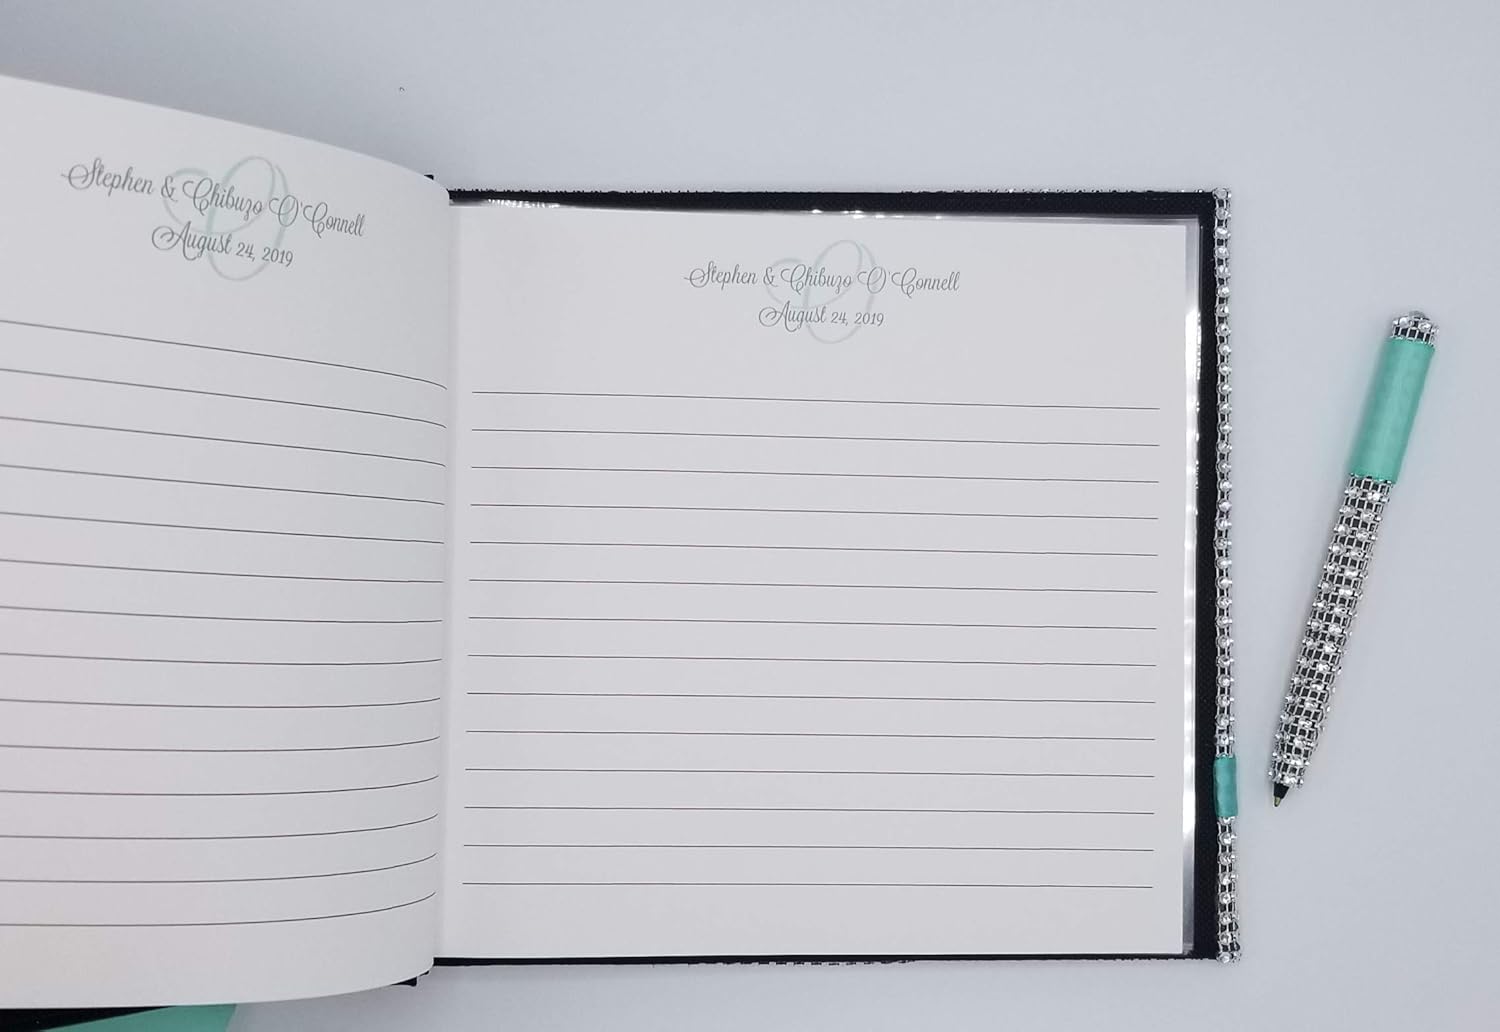 Stephen & Chibuzo O'Connell
August 24, 2019
Stephen & Chibuzo O'Connell
August 24, 2019